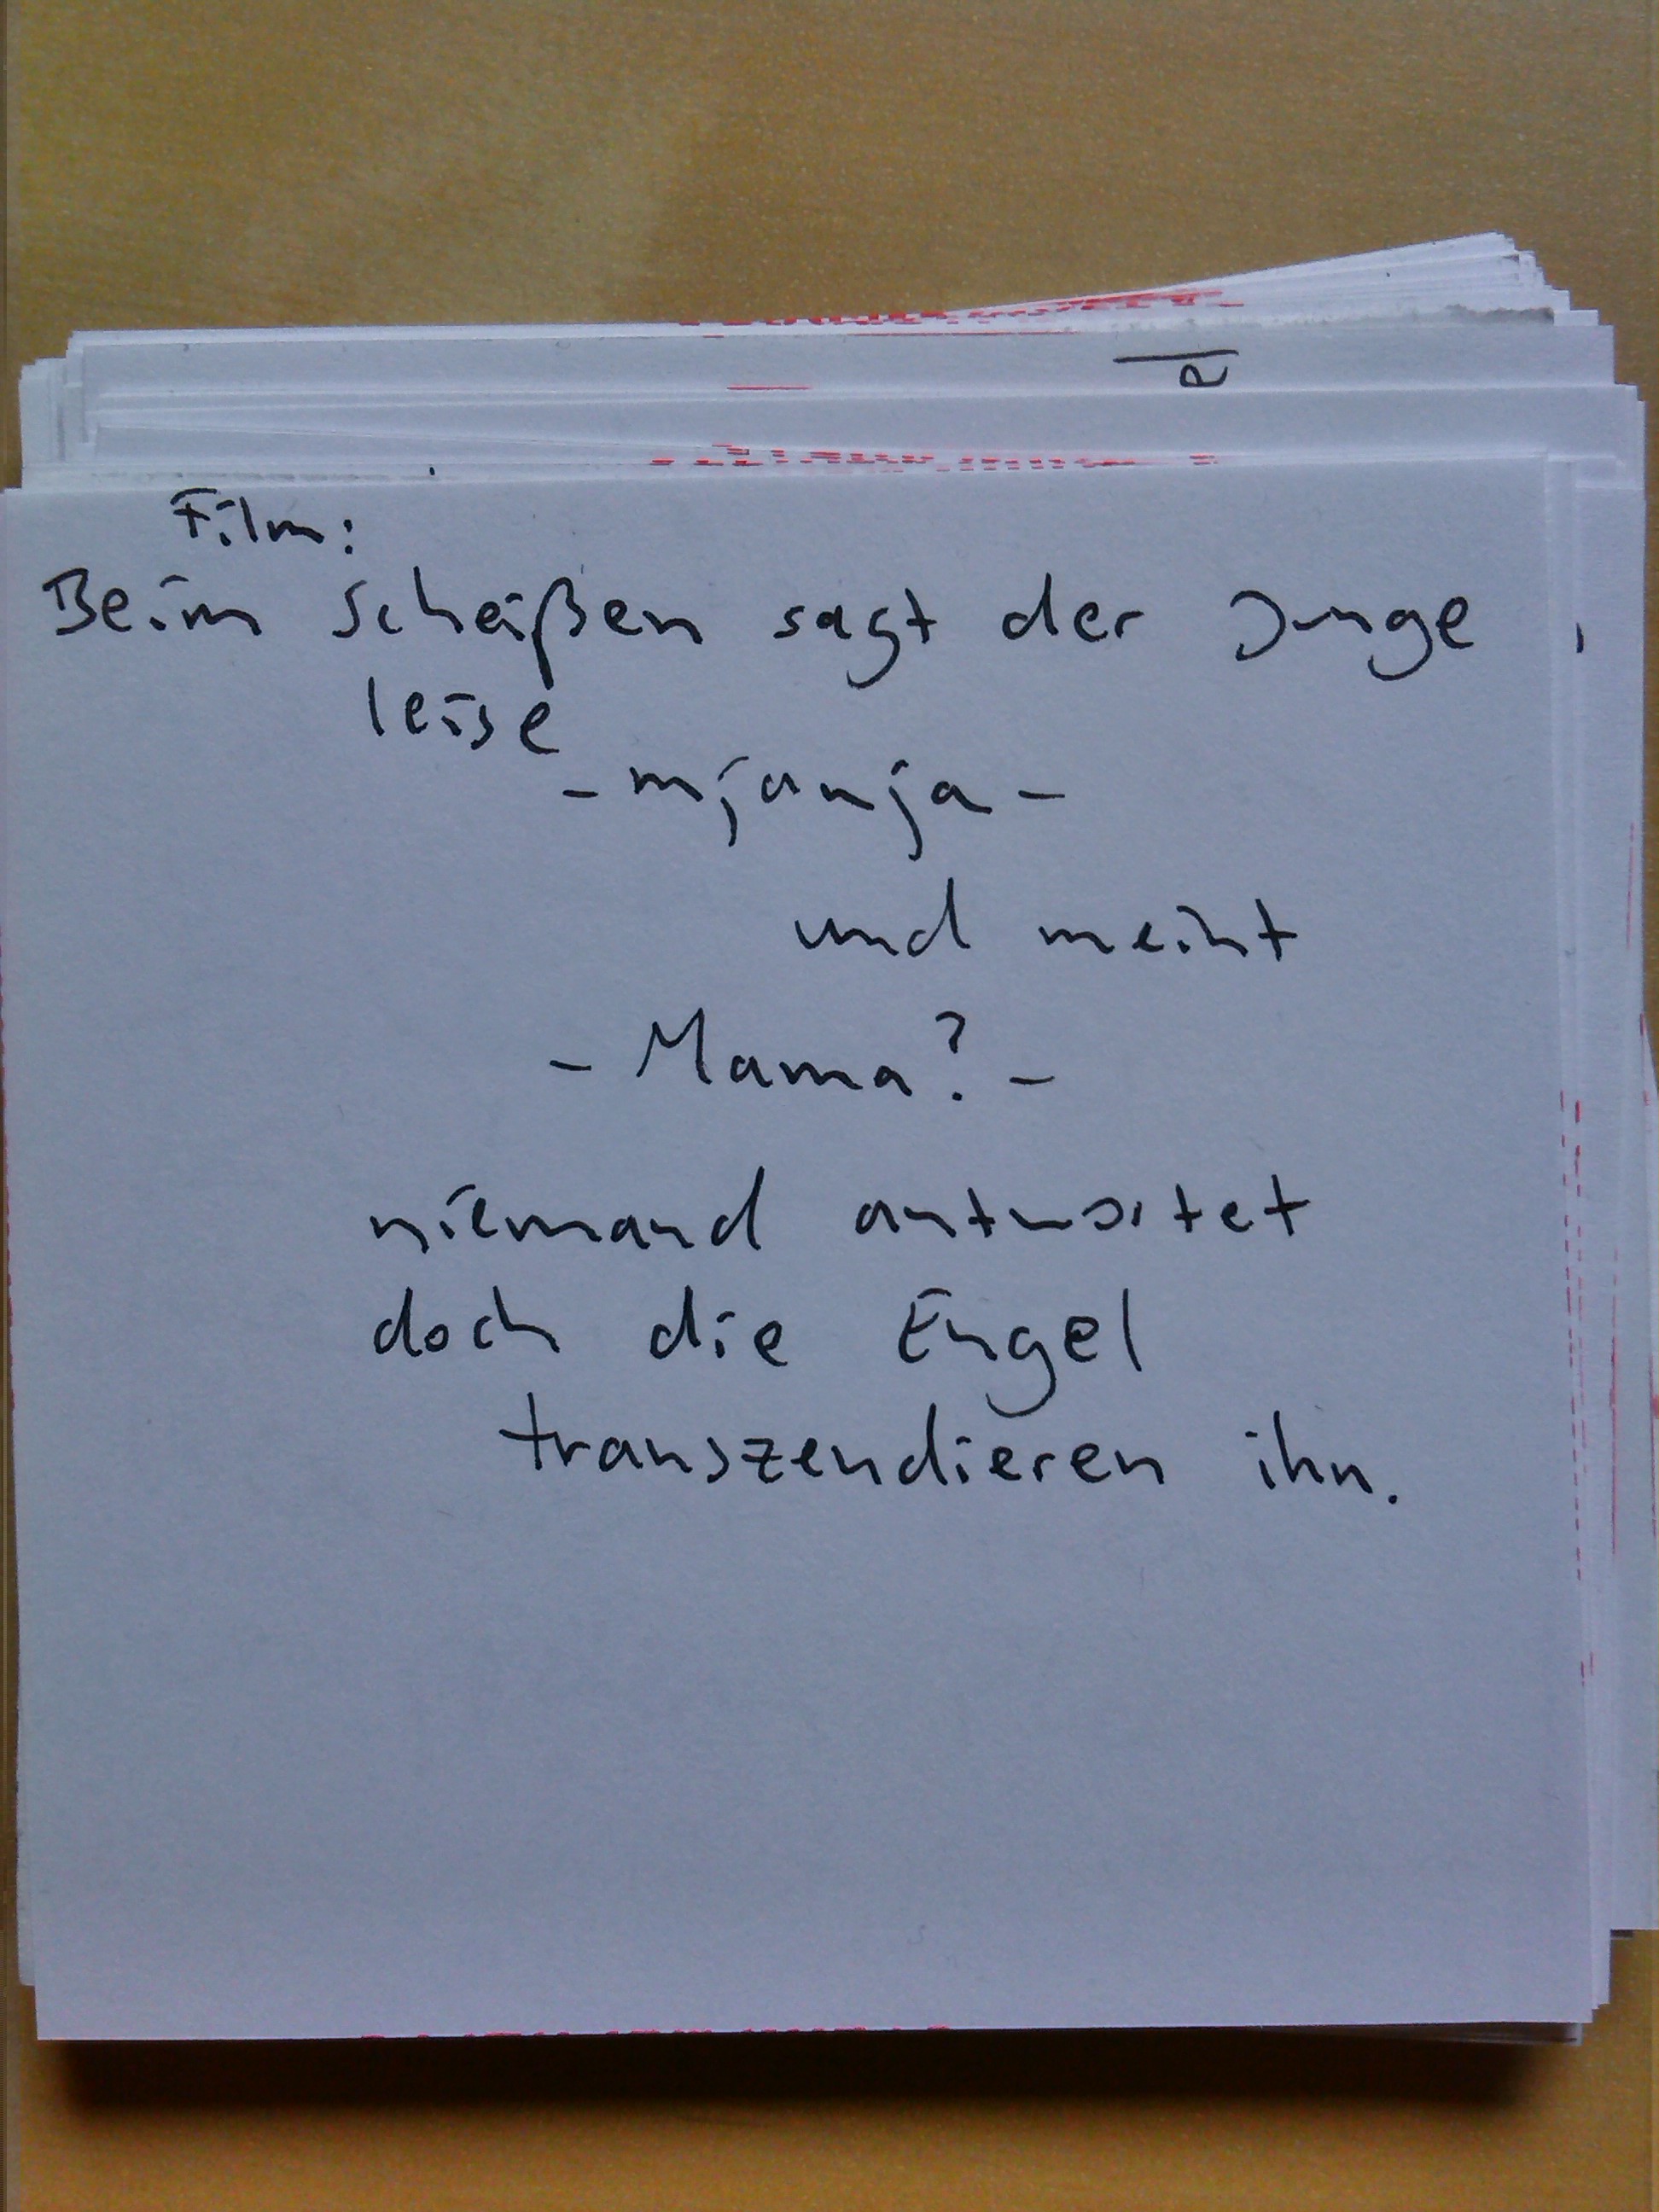 Film:
Beim Scheißen sagt der Junge
leise
- mjanja -
und meint
- Mama? -
niemand antwortet
doch die Engel
transzendieren ihn.